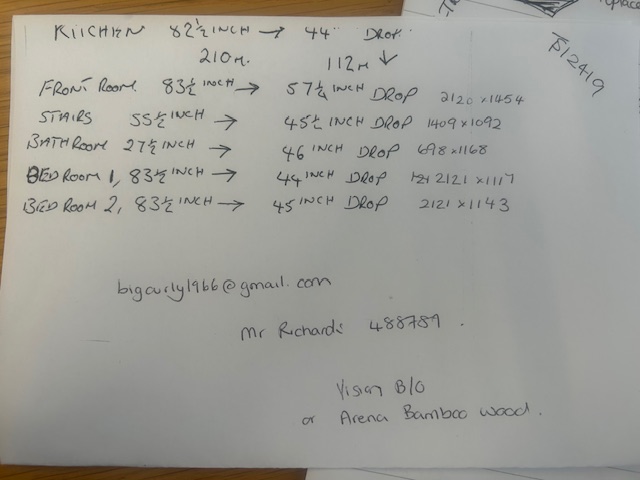 KITCHEN 82½ INCH → 44" DROP.
210m. 112m ↓
FRONT ROOM 83½ INCH → 57¼ INCH DROP 2120 x 1454
STAIRS 55½ INCH → 45½ INCH DROP 1409 x 1092
BATHROOM 27½ INCH → 46 INCH DROP 698 x 1168
BEDROOM 1, 83½ INCH → 44 INCH DROP 2121 x 1117
BEDROOM 2, 83½ INCH → 45 INCH DROP 2121 x 1143
bigcurly1966@gmail.com
Mr Richards 488789.
Vision B/O
or Arena Bamboo wood.